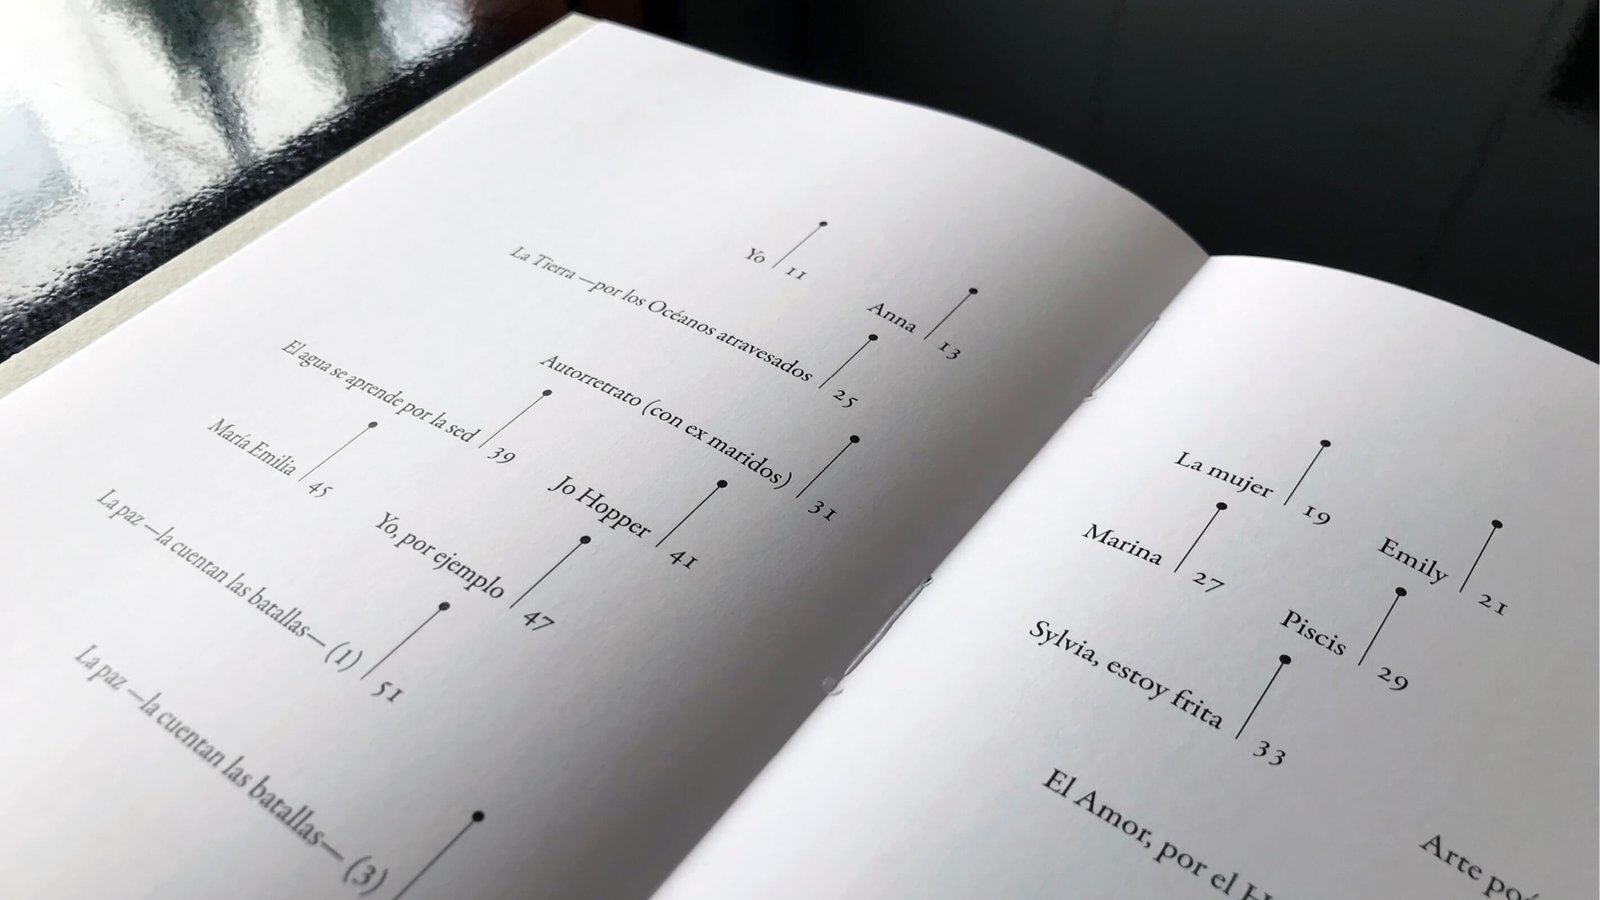 Yo 11
Anna 13
La Tierra —por los Océanos atravesados 25
Autorretrato (con ex maridos) 31
El agua se aprende por la sed 39
Jo Hopper 41
María Emilia 45
Yo, por ejemplo 47
La paz —la cuentan las batallas— (1) 51
La paz —la cuentan las batallas— (3)
La mujer 19
Emily 21
Marina 27
Piscis 29
Sylvia, estoy frita 33
El Amor, por el
Arte